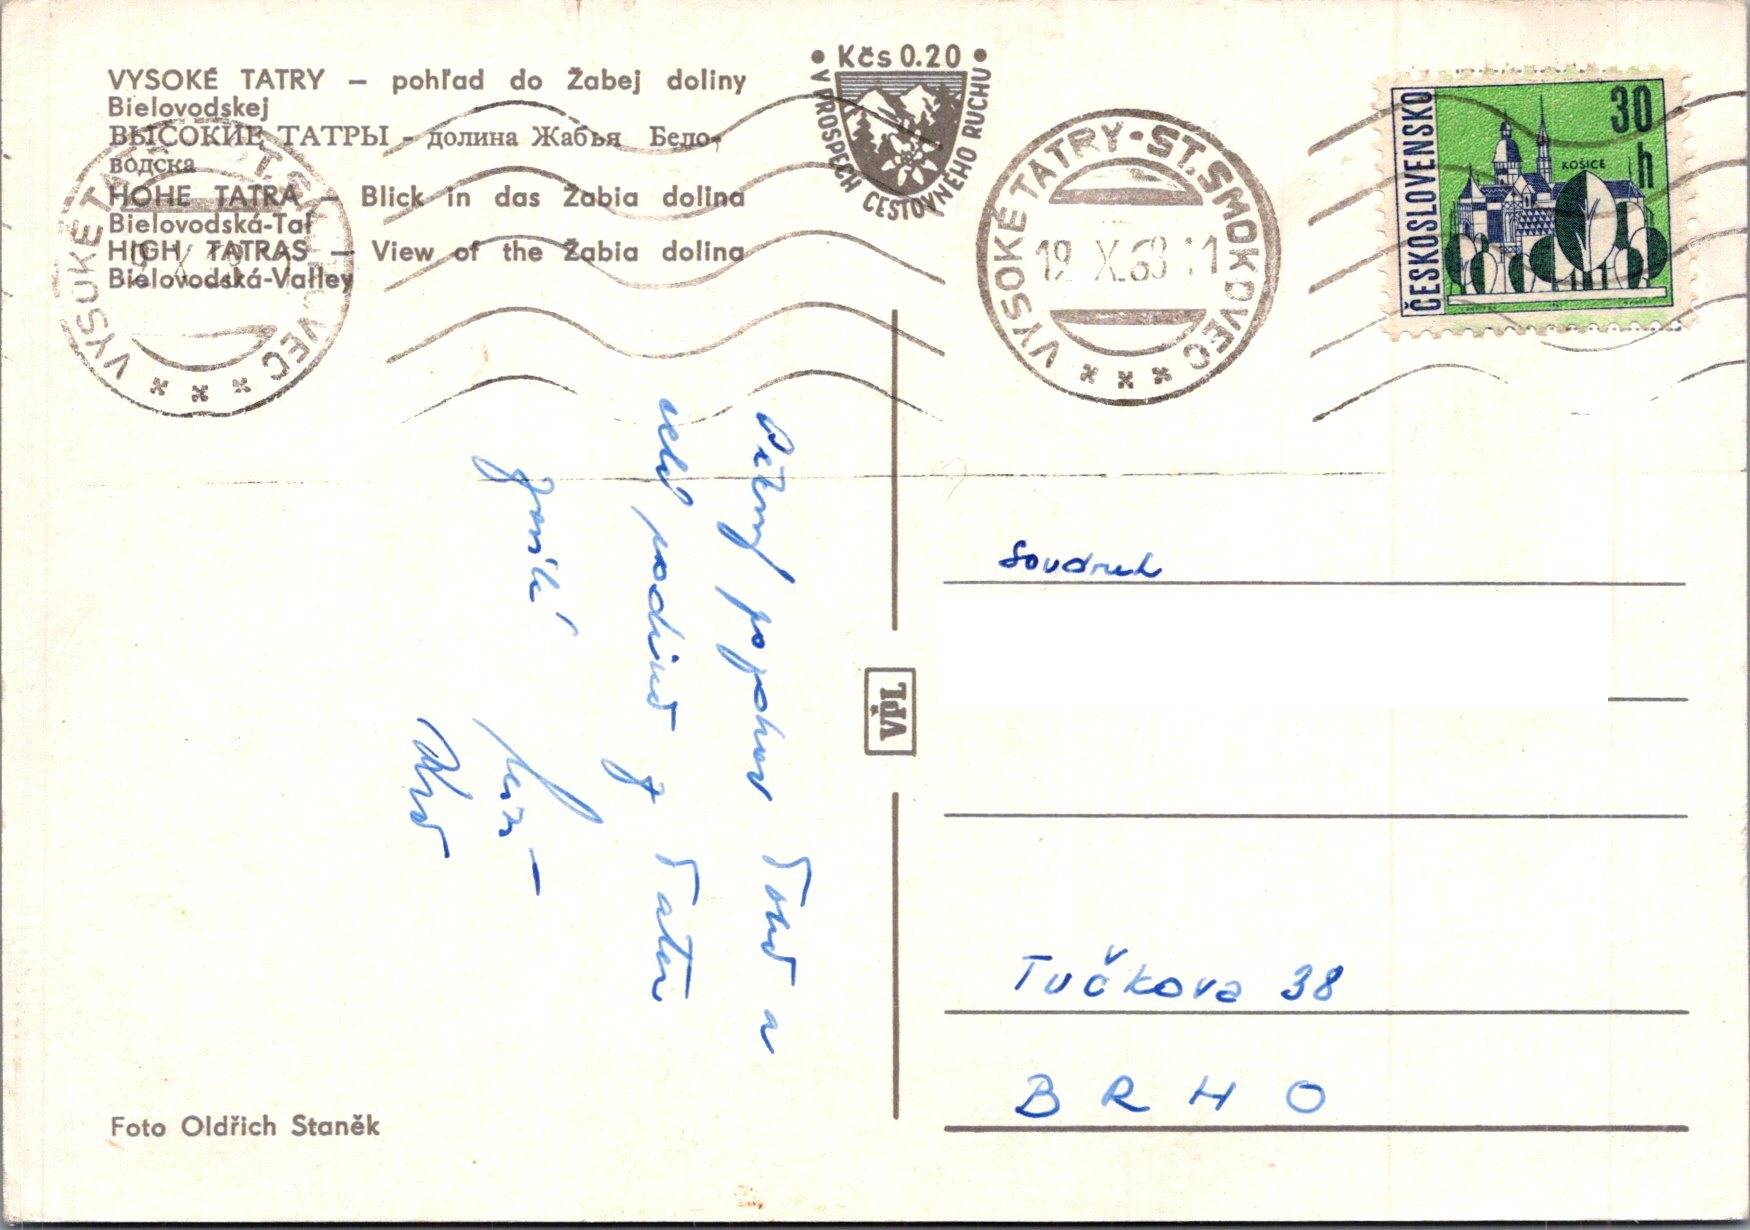 VYSOKÉ TATRY – pohľad do Žabej doliny
Bielovodskej
ВЫСОКИЕ ТАТРЫ - долина Жабья Бело-
водска
HOHE TATRA – Blick in das Žabia dolina
Bielovodská-Tal
HIGH TATRAS – View of the Žabia dolina
Bielovodská-Valley
• Kčs 0.20 •
V PROSPECH CESTOVNÉHO RUCHU
VYSOKÉ TATRY • ST. SMOKOVEC
19 X.68
VYSOKÉ TATRY • ST. SMOKOVEC
ČESKOSLOVENSKO
30
h
KOŠICE
Tobě a
celé rodině z Tater
VPL
Soudruh
Tučkova 38
BRNO
Foto Oldřich Staněk